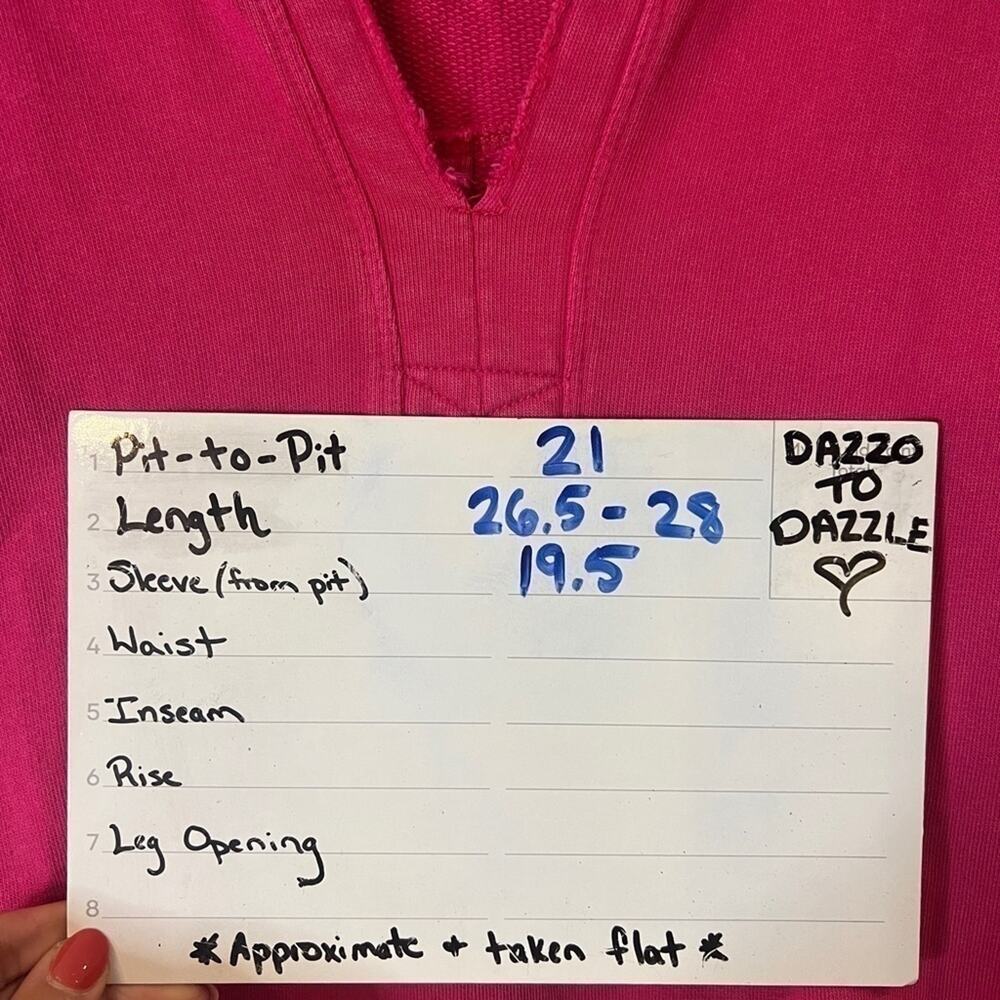 1 Pit-to-Pit 21
2 Length 26.5 - 28
3 Sleeve (from pit) 19.5
4 Waist
5 Inseam
6 Rise
7 Leg Opening
8
* Approximate + taken flat *
DAZZO
TO
DAZZLE